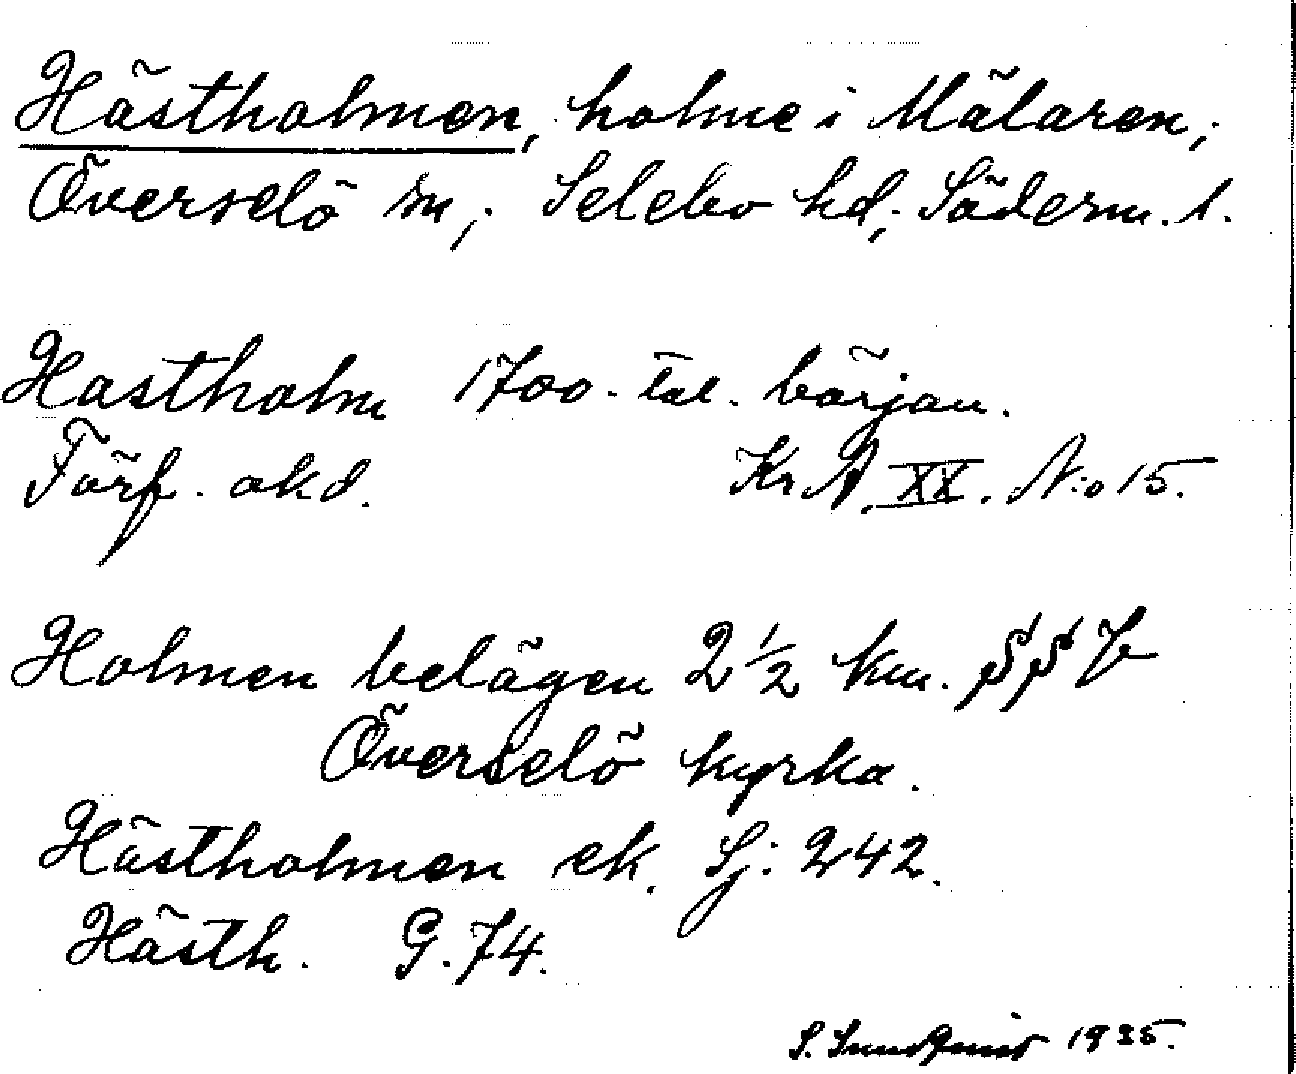 Hästholmen, holme i Mälaren,
Överselö sn, Selebo hd, Söderm. l.
Hastholm 1700-tal. början.
Förf. okd. KrA. XX. N:o 15.
Holmen belägen 2 1/2 km. SSV
Överselö kyrka.
Hästholmen ek. Sj: 242.
Hästh. G. 74.
S. Sundquist 1935.